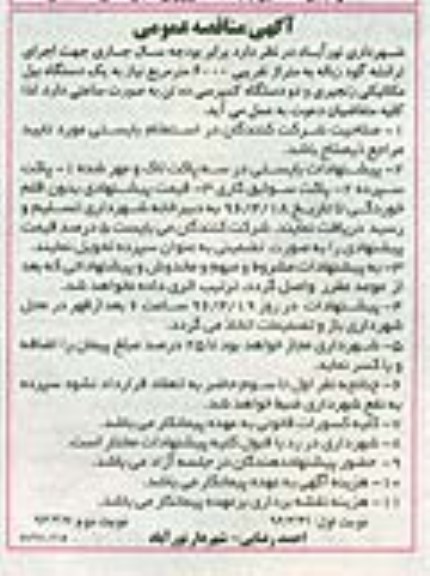 آگهی مناقصه عمومی
شهرداری نورآباد در نظر دارد برابر بودجه سال جاری جهت اجرای
ترانشه گود زباله به متراژ تقریبی ۶۰۰۰ مترمربع نیاز به یک دستگاه بیل
مکانیکی زنجیری و دو دستگاه کمپرسی ده تن به صورت ساعتی دارد لذا
کلیه متقاضیان دعوت به عمل می آید.
۱- صلاحیت شرکت کنندگان در استعلام بایستی مورد تایید
مراجع ذیصلاح باشد.
۲- پیشنهادات بایستی در سه پاکت لاک و مهر شده ۱- پاکت
سپرده ۲- پاکت سوابق کاری ۳- قیمت پیشنهادی بدون قلم
خوردگی تا تاریخ ۹۶/۳/۱۸ به دبیرخانه شهرداری تسلیم و
رسید دریافت نمایند. شرکت کنندگان می بایست ۵ درصد قیمت
پیشنهادی را به صورت تضمینی به عنوان سپرده تحویل نمایند.
۳- به پیشنهادات مشروط و مبهم و مخدوش و پیشنهاداتی که بعد
از موعد مقرر واصل گردد، ترتیب اثری داده نخواهد شد.
۴- پیشنهادات در روز ۹۶/۳/۱۹ ساعت ۶ بعدازظهر در محل
شهرداری باز و تصمیمات اتخاذ می گردد.
۵- شهرداری مجاز خواهد بود تا ۲۵ درصد مبلغ پیمان را اضافه
و یا کسر نماید.
۶- چنانچه نفر اول تا سوم حاضر به انعقاد قرارداد نشود سپرده
به نفع شهرداری ضبط خواهد شد.
۷- کلیه کسورات قانونی به عهده پیمانکار می باشد.
۸- شهرداری در رد یا قبول کلیه پیشنهادات مختار است.
۹- حضور پیشنهاددهندگان در جلسه آزاد می باشد.
۱۰- هزینه آگهی به عهده پیمانکار می باشد.
۱۱- هزینه نقشه برداری بر عهده پیمانکار می باشد.
نوبت اول: نوبت دوم:
احمد رضایی- شهردار نورآباد